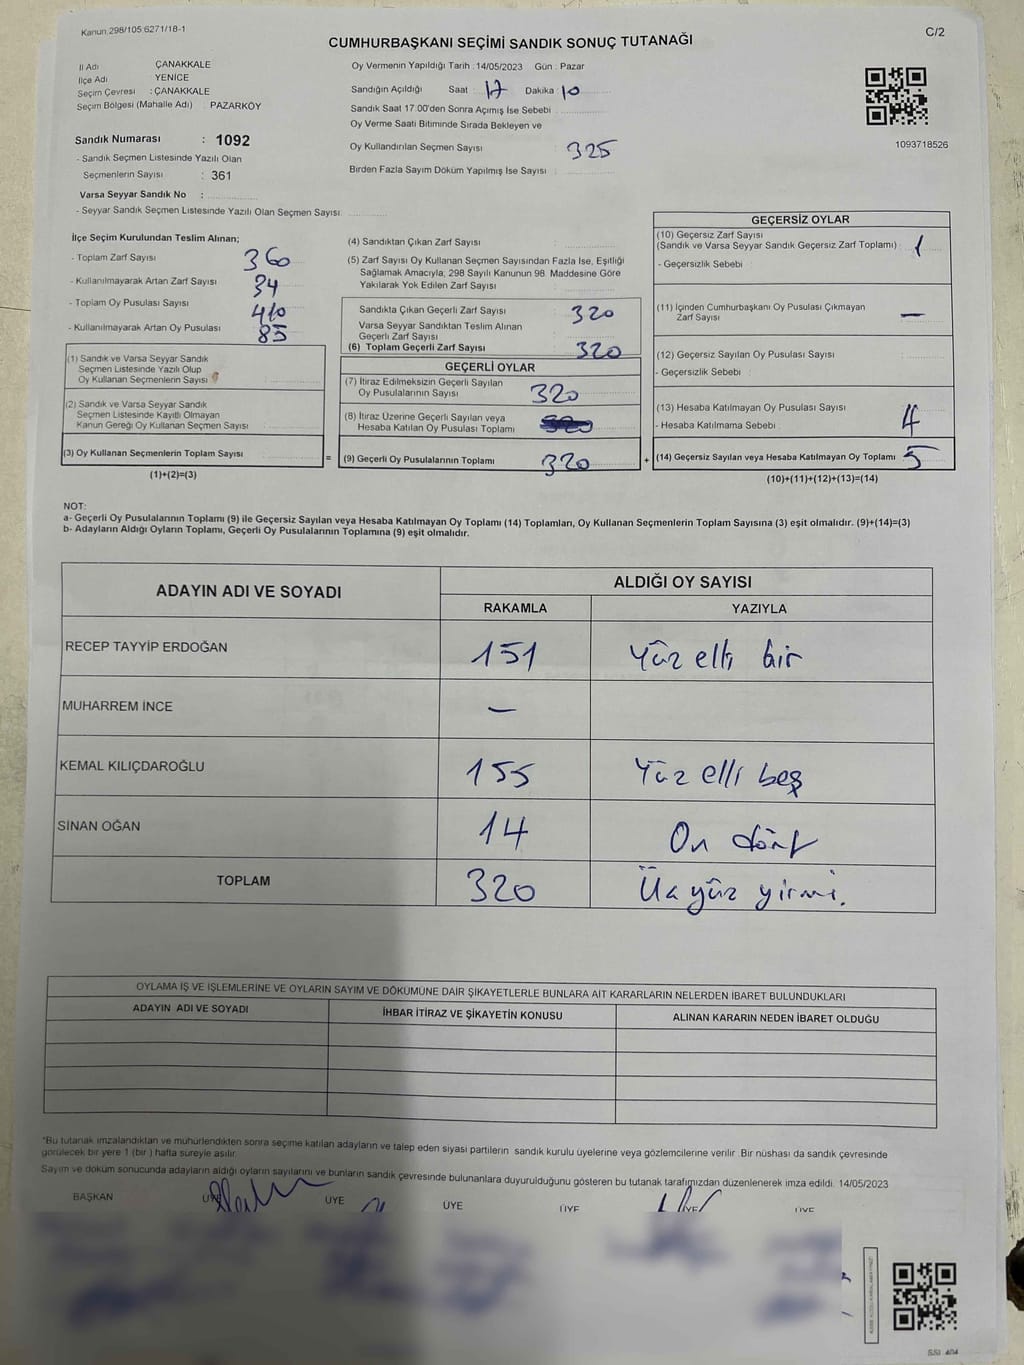 Kanun.298/105:6271/18-1
C/2
CUMHURBAŞKANI SEÇİMİ SANDIK SONUÇ TUTANAĞI
İl Adı ÇANAKKALE
İlçe Adı YENİCE
Seçim Çevresi : ÇANAKKALE
Seçim Bölgesi (Mahalle Adı) : PAZARKÖY
Sandık Numarası : 1092
- Sandık Seçmen Listesinde Yazılı Olan
Seçmenlerin Sayısı : 361
Varsa Seyyar Sandık No :
- Seyyar Sandık Seçmen Listesinde Yazılı Olan Seçmen Sayısı:
Oy Vermenin Yapıldığı Tarih : 14/05/2023 Gün : Pazar
Sandığın Açıldığı Saat : 17 Dakika : 10
Sandık Saat 17:00'den Sonra Açımış İse Sebebi :
Oy Verme Saati Bitiminde Sırada Bekleyen ve
Oy Kullandırılan Seçmen Sayısı : 325
Birden Fazla Sayım Döküm Yapılmış İse Sayısı :
1093718526
İlçe Seçim Kurulundan Teslim Alınan;
- Toplam Zarf Sayısı 360
- Kullanılmayarak Artan Zarf Sayısı 34
- Toplam Oy Pusulası Sayısı 410
- Kullanılmayarak Artan Oy Pusulası 85
(1) Sandık ve Varsa Seyyar Sandık
Seçmen Listesinde Yazılı Olup
Oy Kullanan Seçmenlerin Sayısı
(2) Sandık ve Varsa Seyyar Sandık
Seçmen Listesinde Kayıtlı Olmayan
Kanun Gereği Oy Kullanan Seçmen Sayısı :
(3) Oy Kullanan Seçmenlerin Toplam Sayısı
(1)+(2)=(3)
=
(4) Sandıktan Çıkan Zarf Sayısı
(5) Zarf Sayısı Oy Kullanan Seçmen Sayısından Fazla İse, Eşitliği
Sağlamak Amacıyla, 298 Sayılı Kanunun 98. Maddesine Göre
Yakılarak Yok Edilen Zarf Sayısı :
Sandıkta Çıkan Geçerli Zarf Sayısı : 320
Varsa Seyyar Sandıktan Teslim Alınan
Geçerli Zarf Sayısı :
(6) Toplam Geçerli Zarf Sayısı 320
GEÇERLİ OYLAR
(7) İtiraz Edilmeksizin Geçerli Sayılan
Oy Pusulalarının Sayısı : 320
(8) İtiraz Üzerine Geçerli Sayılan veya
Hesaba Katılan Oy Pusulası Toplamı
(9) Geçerli Oy Pusulalarının Toplamı : 320
+
GEÇERSİZ OYLAR
(10) Geçersiz Zarf Sayısı
(Sandık ve Varsa Seyyar Sandık Geçersiz Zarf Toplamı) : 1
- Geçersizlik Sebebi :
(11) İçinden Cumhurbaşkanı Oy Pusulası Çıkmayan
Zarf Sayısı : –
(12) Geçersiz Sayılan Oy Pusulası Sayısı :
- Geçersizlik Sebebi :
(13) Hesaba Katılmayan Oy Pusulası Sayısı : 4
- Hesaba Katılmama Sebebi :
(14) Geçersiz Sayılan veya Hesaba Katılmayan Oy Toplamı : 5
(10)+(11)+(12)+(13)=(14)
NOT:
a- Geçerli Oy Pusulalarının Toplamı (9) ile Geçersiz Sayılan veya Hesaba Katılmayan Oy Toplamı (14) Toplamları, Oy Kullanan Seçmenlerin Toplam Sayısına (3) eşit olmalıdır. (9)+(14)=(3)
b- Adayların Aldığı Oyların Toplamı, Geçerli Oy Pusulalarının Toplamına (9) eşit olmalıdır.
ADAYIN ADI VE SOYADI ALDIĞI OY SAYISI
RAKAMLA YAZIYLA
RECEP TAYYİP ERDOĞAN 151 Yüz elli bir
MUHARREM İNCE –
KEMAL KILIÇDAROĞLU 155 Yüz elli beş
SİNAN OĞAN 14 On dört
TOPLAM 320 Üç yüz yirmi.
OYLAMA İŞ VE İŞLEMLERİNE VE OYLARIN SAYIM VE DÖKÜMÜNE DAİR ŞİKAYETLERLE BUNLARA AİT KARARLARIN NELERDEN İBARET BULUNDUKLARI
ADAYIN ADI VE SOYADI İHBAR İTİRAZ VE ŞİKAYETİN KONUSU ALINAN KARARIN NEDEN İBARET OLDUĞU
*Bu tutanak imzalandıktan ve mühürlendikten sonra seçime katılan adayların ve talep eden siyasi partilerin sandık kurulu üyelerine veya gözlemcilerine verilir. Bir nüshası da sandık çevresinde
görülecek bir yere 1 (bir ) hafta süreyle asılır.
Sayım ve döküm sonucunda adayların aldığı oyların sayılarını ve bunların sandık çevresinde bulunanlara duyurulduğunu gösteren bu tutanak tarafımızdan düzenlenerek imza edildi. 14/05/2023
BAŞKAN ÜYE ÜYE ÜYE ÜYE ÜYE ÜYE